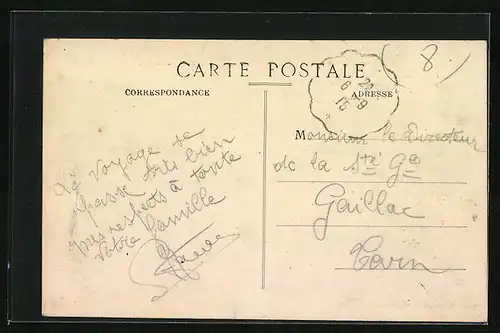 CARTE POSTALE
CORRESPONDANCE
ADRESSE
8
20
6-9
15
Le Voyage se
passe très bien
mes respects à toute
Votre famille
Monsieur le Directeur
de la Sté Gle
Gaillac
Tarn